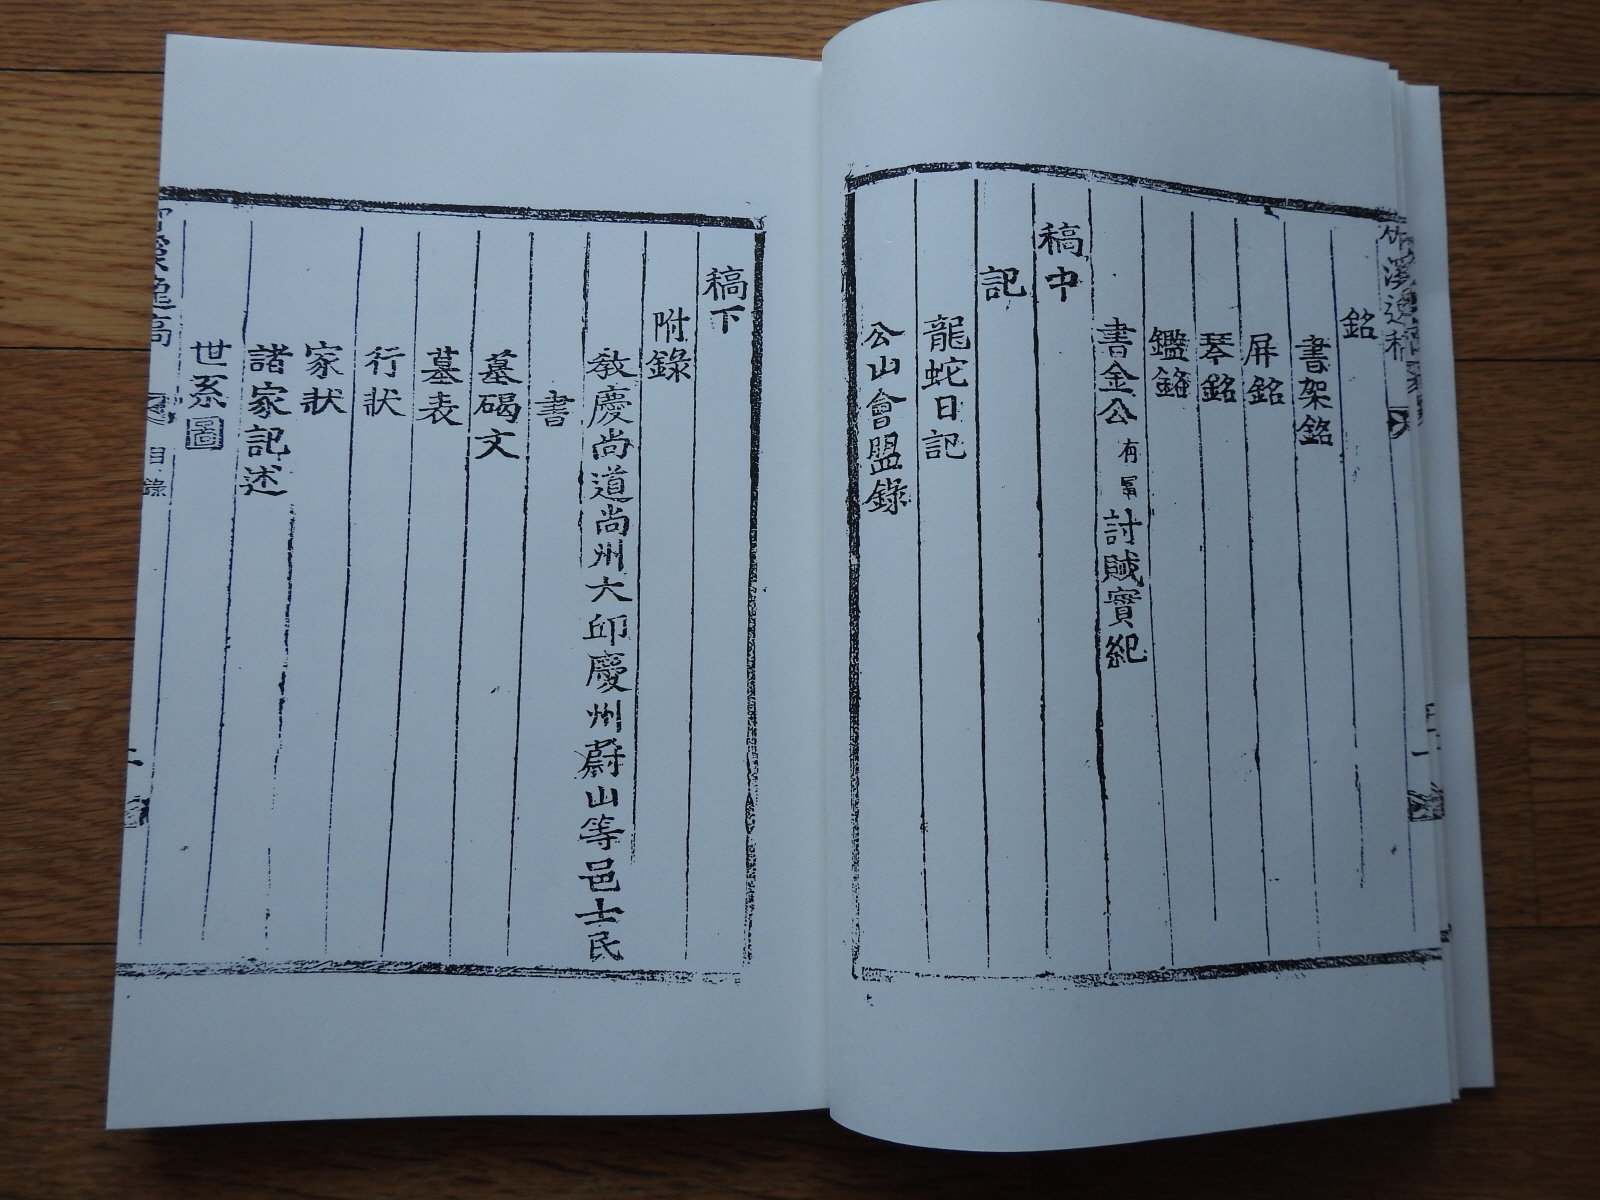 銘
書架銘
屏銘
琴銘
鑑銘
書金公有 討賊實紀
稿中
記
龍蛇日記
公山會盟錄
稿下
附錄
教慶尚道尚州大邱慶州蔚山等邑士民
書
墓碣文
墓表
行狀
家狀
諸家記述
世系圖
目錄